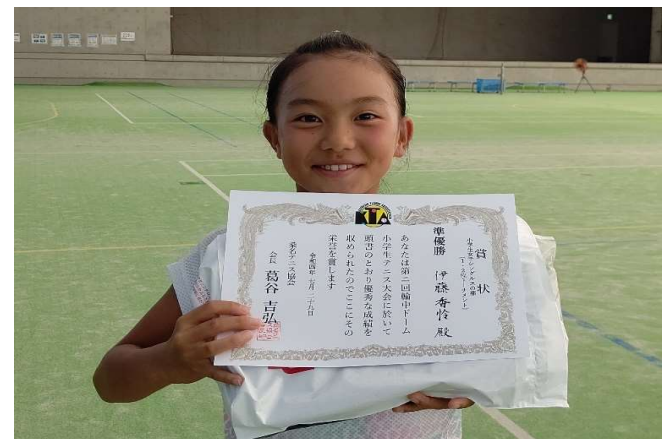 KTA
賞状
小学生女子シングルスの部
準優勝
伊藤香怜 殿
あなたは第二回輪中ドーム
小学生テニス大会に於いて
頭書のとおり優秀な成績を
収められたのでここにその
栄誉を賞します
令和四年 七月二十九日
桑名テニス協会
会長 葛谷 吉弘